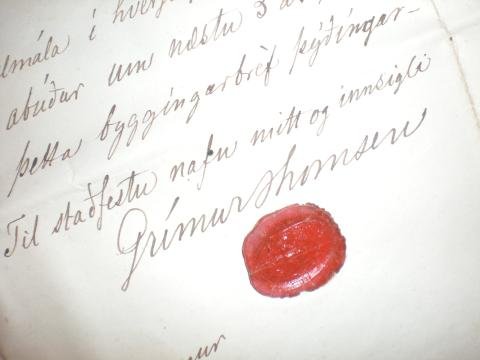 álmála í hverju
ábúðar um næstu 3 ár,
þetta byggíngarbréf þýðíngar-
Til staðfestu nafn mitt og innsigli
Grímur Thomsen